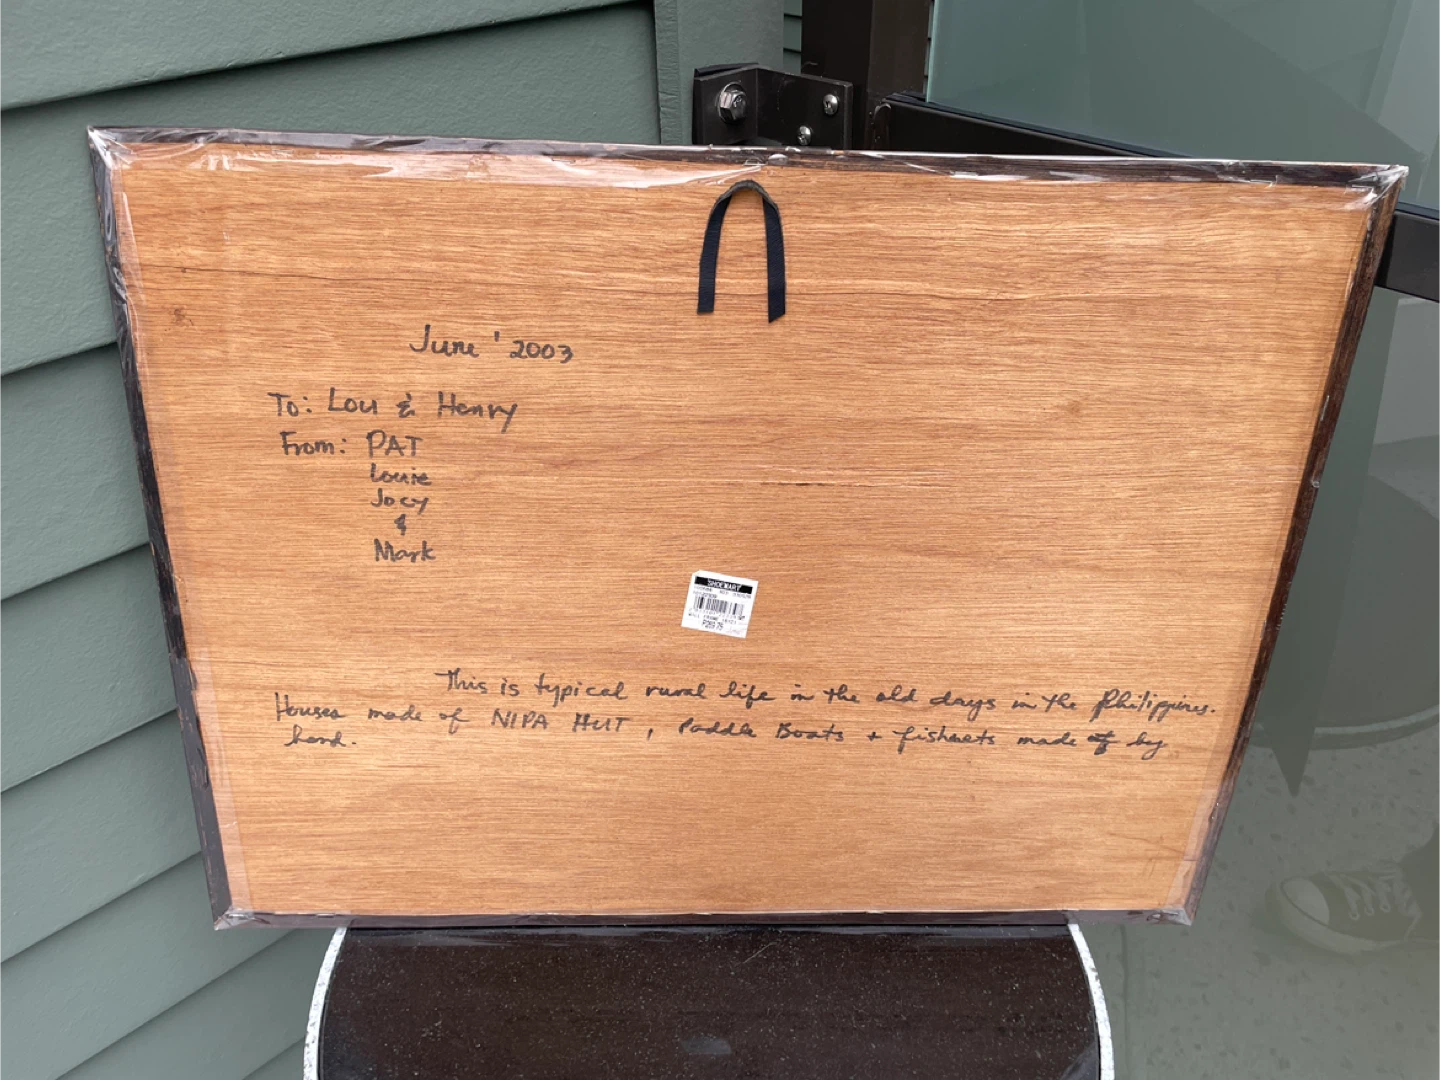 June '2003
To: Lou & Henry
From: PAT
Louie
Joey
&
Mark
SHOEMART
This is typical rural life in the old days in the Philippines.
Houses made of NIPA HUT, Paddle Boats + fishnets made of by
hand.